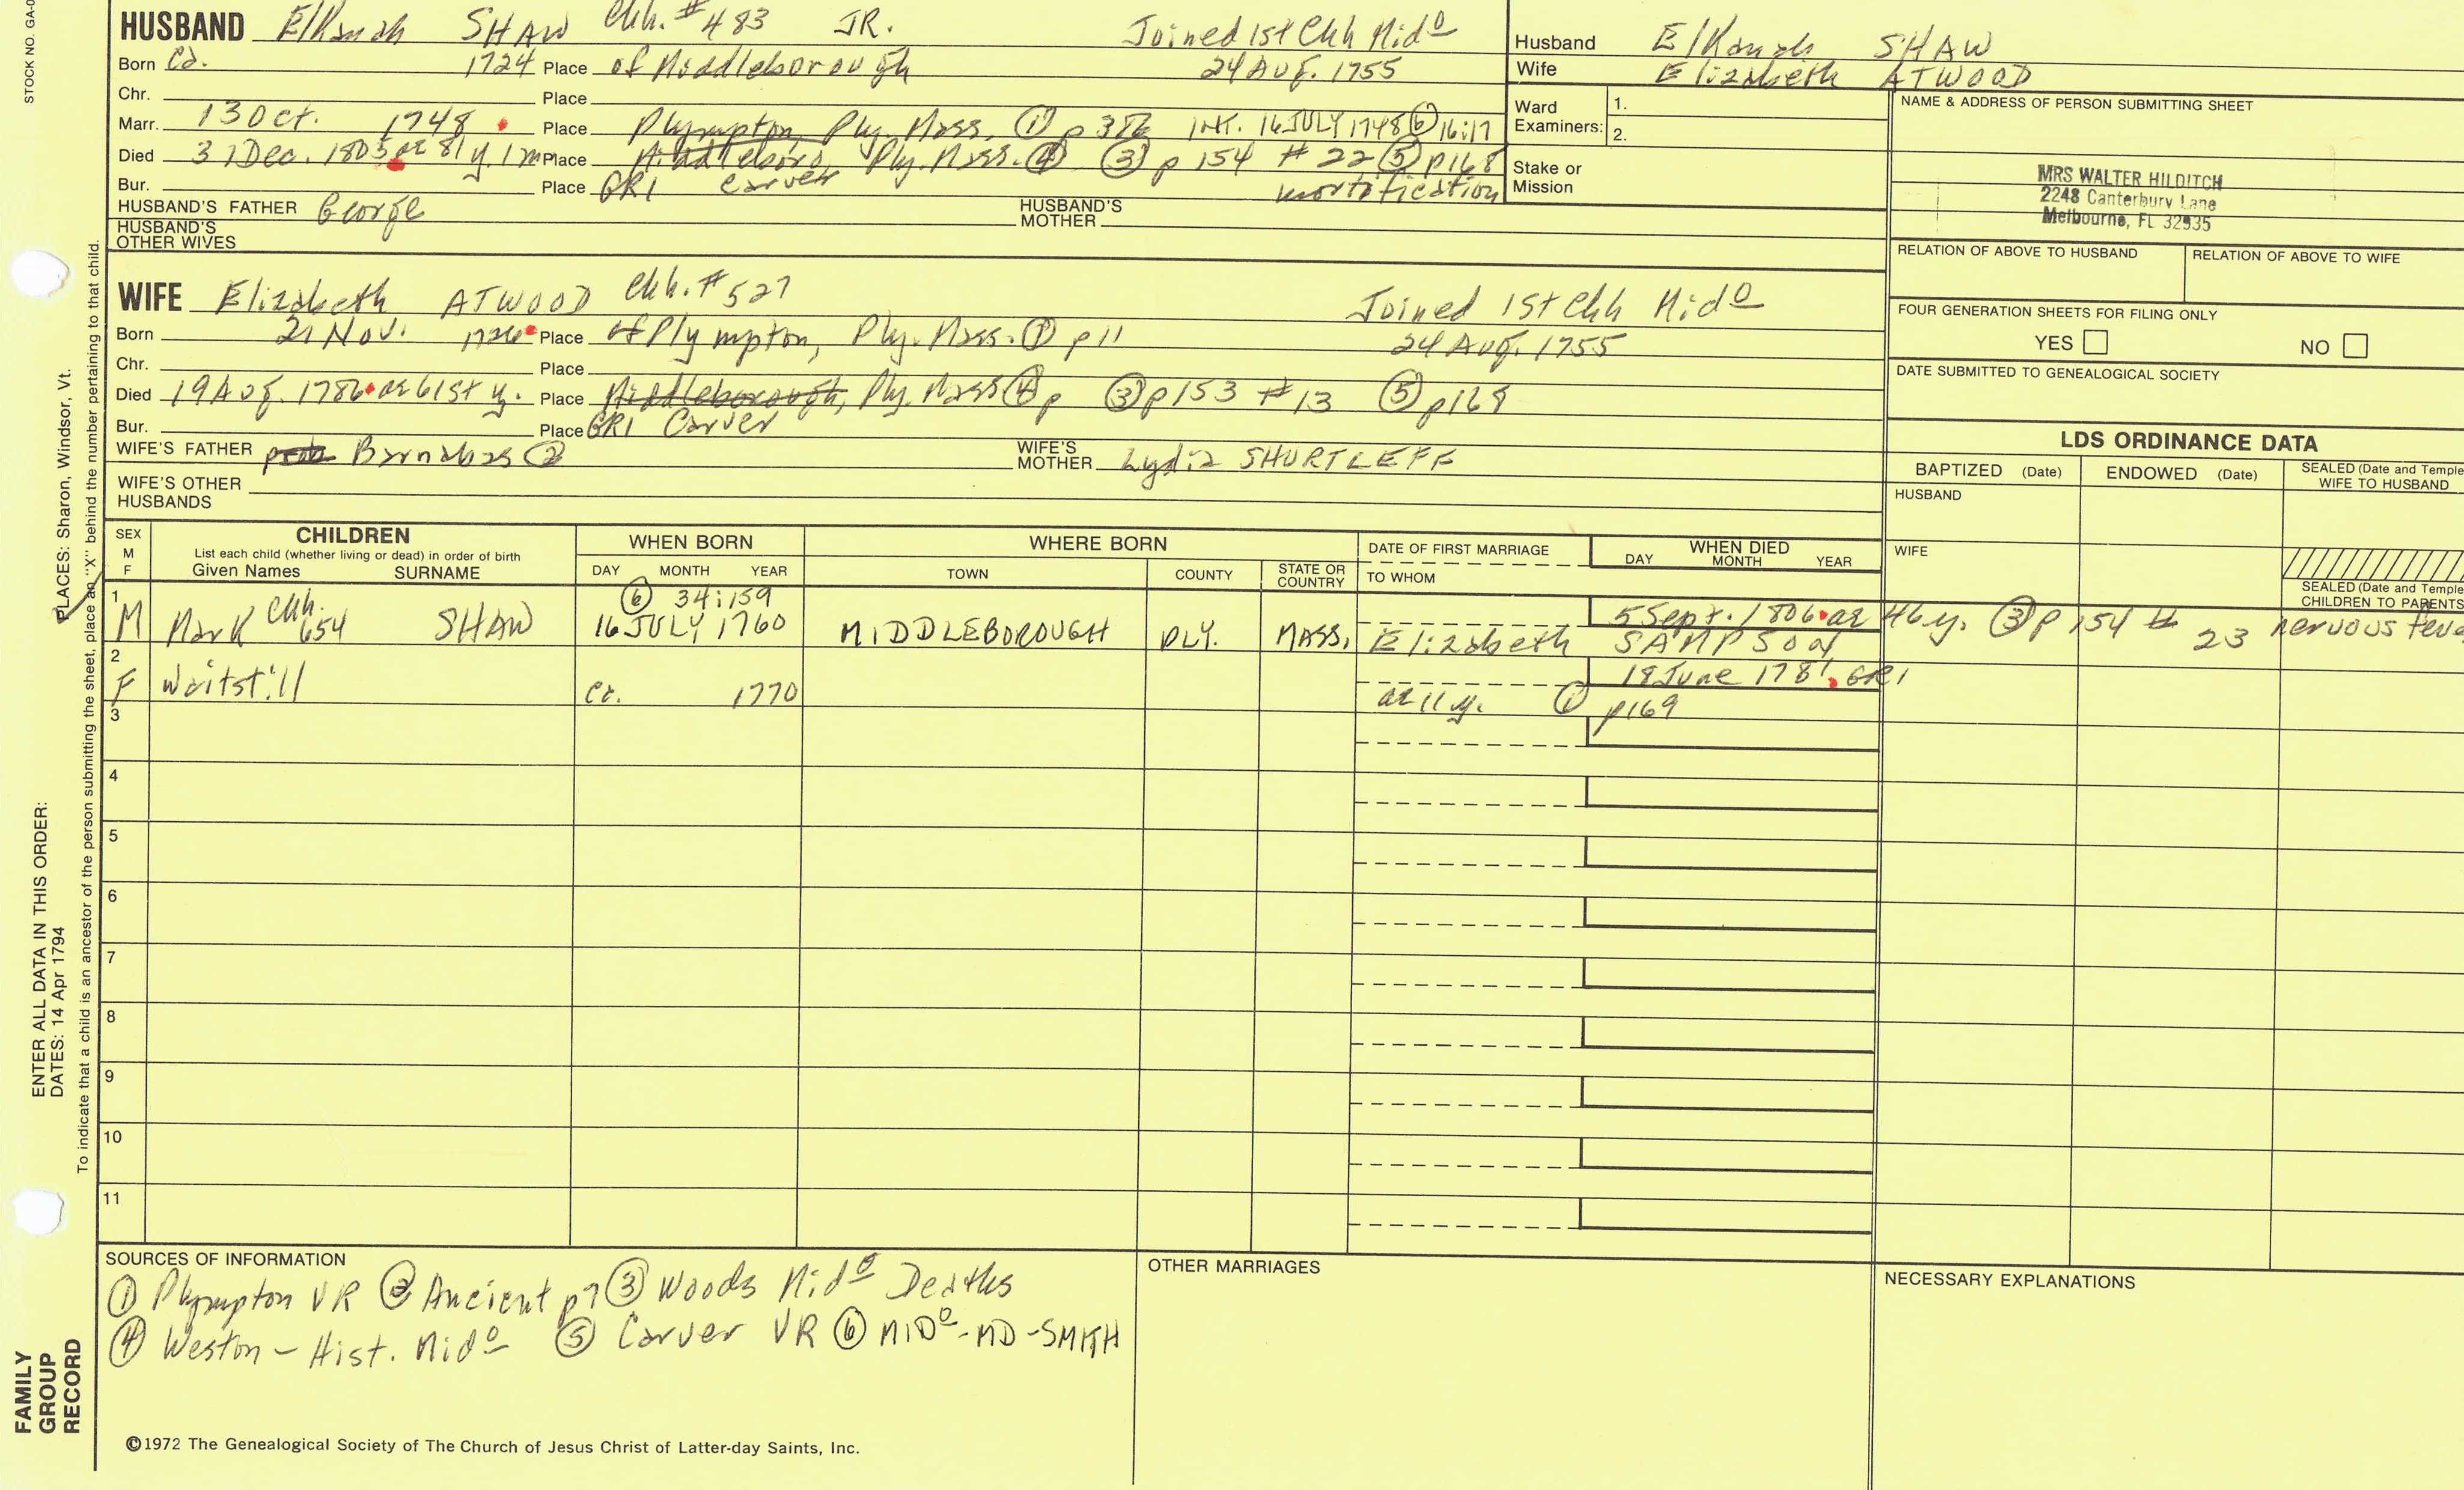 STOCK NO. GA-0
HUSBAND Elkanah SHAW Chh. #483 JR. Joined 1st Chh Mido
Born Ca. 1724 Place of Middleborough 24 Aug. 1755
Chr. Place
Marr. 13 Oct. 1748 Place Plympton, Ply. Mass. ① INT. 16 JULY 1748 ⑥ 16:17
Died Dec. 1805 ae 81 y. 1 m Place Middleboro, Ply. Mass. ④ ③ p 154 #22 ⑤ p168
Bur. Place GR1 Carver mortification
HUSBAND'S FATHER George HUSBAND'S MOTHER
HUSBAND'S OTHER WIVES
Husband Elkanah SHAW
Wife Elizabeth ATWOOD
Ward Examiners: 1.
2.
Stake or Mission
NAME & ADDRESS OF PERSON SUBMITTING SHEET
MRS WALTER HILDITCH
2248 Canterbury Lane
Melbourne, FL 32935
RELATION OF ABOVE TO HUSBAND RELATION OF ABOVE TO WIFE
FOUR GENERATION SHEETS FOR FILING ONLY
YES NO
DATE SUBMITTED TO GENEALOGICAL SOCIETY
WIFE Elizabeth ATWOOD Chh. #527 Joined 1st Chh Mido
Born 21 Nov. 1726 Place of Plympton, Ply. Mass. ① p11 24 Aug. 1755
Chr. Place
Died 19 Aug. 1786 ae 61st y. Place Middleborough, Ply. Mass ④ p ③ p153 #13 ⑤ p168
Bur. Place GR1 Carver
WIFE'S FATHER Barnabas ② WIFE'S MOTHER Lydia SHURTLEFF
WIFE'S OTHER HUSBANDS
LDS ORDINANCE DATA
BAPTIZED (Date) ENDOWED (Date) SEALED (Date and Temple
WIFE TO HUSBAND
HUSBAND
WIFE
SEALED (Date and Temple
CHILDREN TO PARENTS
SEX M F CHILDREN WHEN BORN WHERE BORN DATE OF FIRST MARRIAGE WHEN DIED
List each child (whether living or dead) in order of birth
Given Names SURNAME DAY MONTH YEAR TOWN COUNTY STATE OR COUNTRY TO WHOM DAY MONTH YEAR
1 ⑥ 34:159 5 Sept. 1806 ae 46 y. ③ p 154 # 23 nervous feve
M Mark Chh. 654 SHAW 16 JULY 1760 MIDDLEBOROUGH PLY. MASS. Elizabeth SAMPSON
2 18 June 1781 GR1
F Waitstill Ca. 1770 ae 11 y. ① p169
3
4
5
6
7
8
9
10
11
SOURCES OF INFORMATION
① Plympton VR ② Ancient p7 ③ Woods Mido Deaths
④ Weston - Hist. Mido ⑤ Carver VR ⑥ MIDo-MD-SMITH
OTHER MARRIAGES
NECESSARY EXPLANATIONS
©1972 The Genealogical Society of The Church of Jesus Christ of Latter-day Saints, Inc.
FAMILY GROUP RECORD
ENTER ALL DATA IN THIS ORDER:
DATES: 14 Apr 1794
PLACES: Sharon, Windsor, Vt.
To indicate that a child is an ancestor of the person submitting the sheet, place an "X" behind the number pertaining to that child.